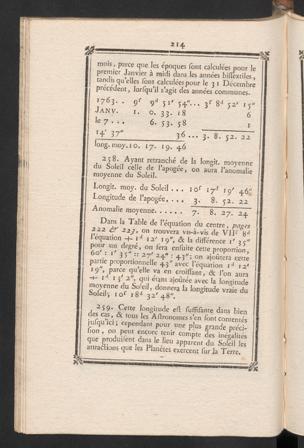 214
mois, parce que les époques sont calculées pour le
premier Janvier à midi dans les années bissextiles,
tandis qu'elles sont calculées pour le 31 Décembre
précédent, lorsqu'il s'agit des années communes.
1763. . 9ᶠ 9ᵈ 51′ 54″... 3ᶠ 8ᵈ 52′ 15″
JANV. 1. 0. 33. 18 6
le 7 . . . 6. 53. 58 1
14′ 37″ 36 ... 3. 8. 52. 22
long. moy. 10. 17. 19. 46
258. Ayant retranché de la longit. moyenne
du Soleil celle de l'apogée, on aura l'anomalie
moyenne du Soleil.
Longit. moy. du Soleil . . . 10ᶠ 17ᵈ 19′ 46″
Longitude de l'apogée. . . . 3. 8. 52. 22
Anomalie moyenne. . . . . . 7. 8. 27. 24
Dans la Table de l'équation du centre, pages
222 & 223, on trouvera vis-à-vis de VIIᶠ 8ᵈ
l'équation + 1ᵈ 12′ 19″, & la différence 1′ 35″
pour un degré, on fera ensuite cette proportion,
60′ : 1′ 35″ :: 27′ 24″ : 43″; on ajoutera cette
partie proportionnelle 43″ avec l'équation 1ᵈ 12′
19″, parce qu'elle va en croissant, & l'on aura
+ 1ᵈ 13′ 2″, qui étant ajoutée avec la longitude
moyenne du Soleil, donnera la longitude vraie du
Soleil, 10ᶠ 18ᵈ 32′ 48″.
259. Cette longitude est suffisante dans bien
des cas, & tous les Astronomes s'en sont contentés
jusqu'ici; cependant pour une plus grande précision,
on peut encore tenir compte des inégalités
que produisent dans le lieu apparent du Soleil les
attractions que les Planètes exercent sur la Terre.